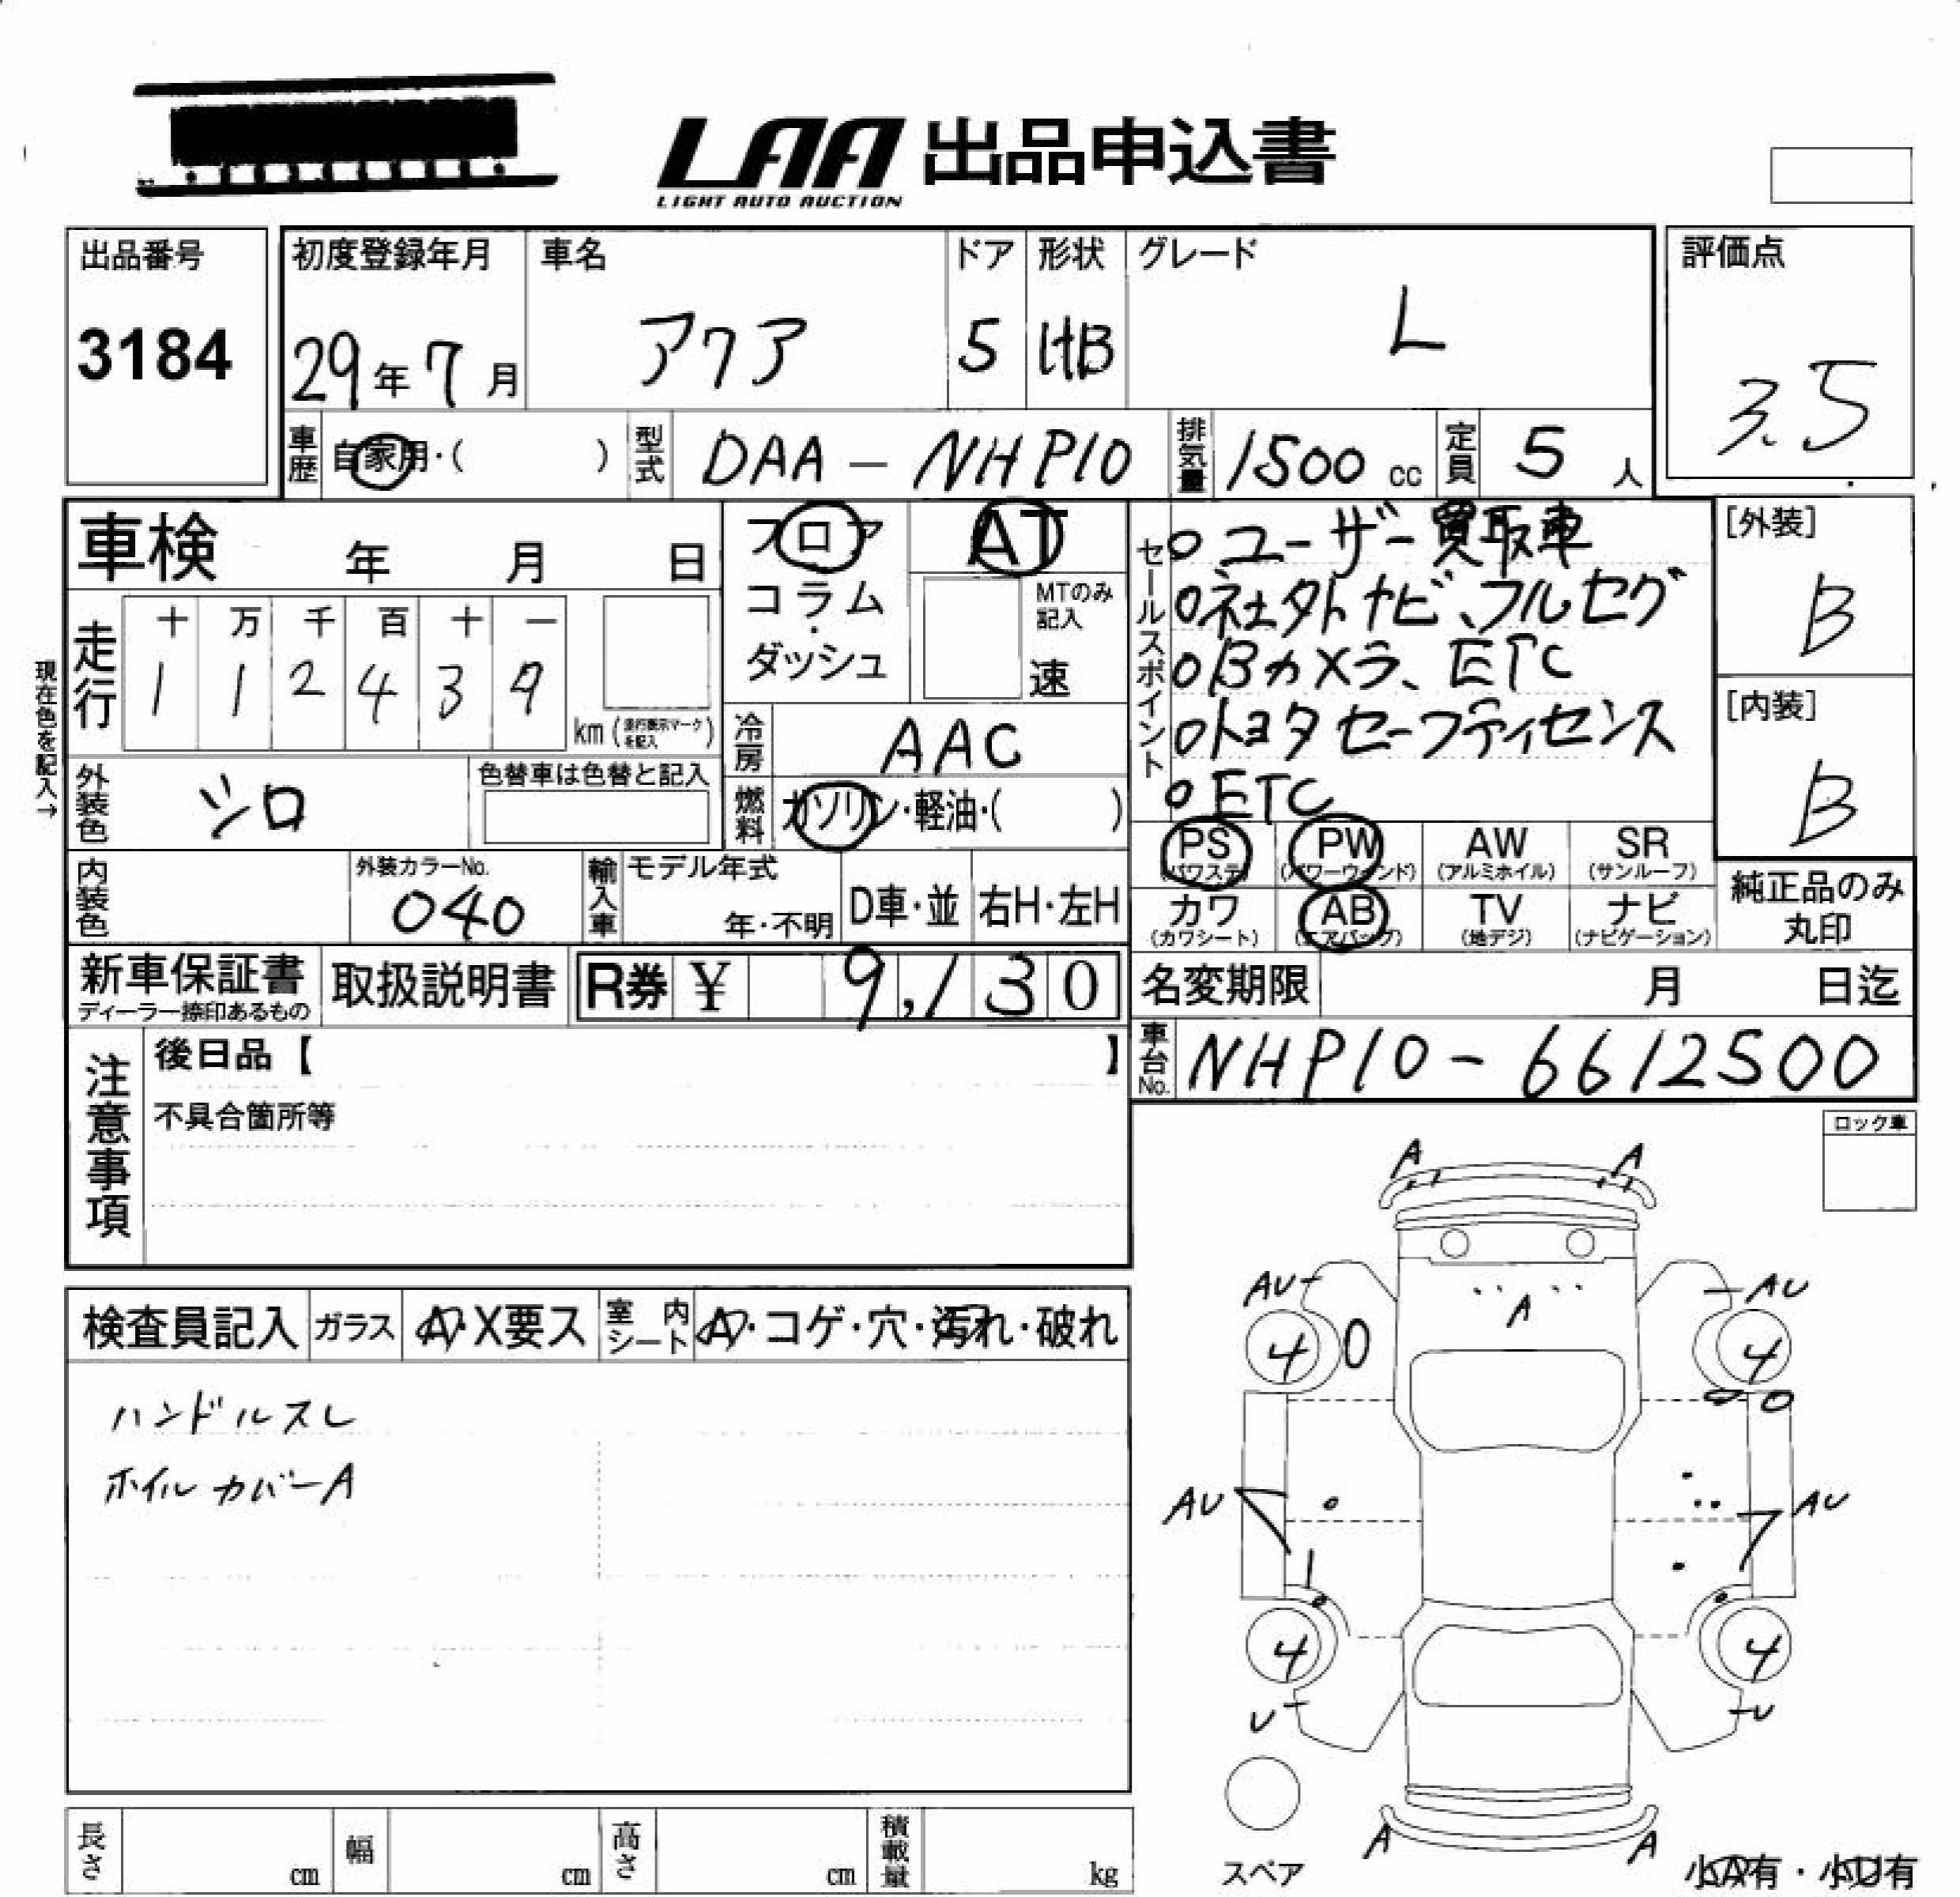 LAA 出品申込書
LIGHT AUTO AUCTION
出品番号
3184
初度登録年月
29年7月
車名
アクア
ドア
5
形状
HB
グレード
L
評価点
3.5
車歴
自家用・( )
型式
DAA-NHP10
排気量
1500 cc
定員
5 人
車検 年 月 日
フロア
コラム
・
ダッシュ
AT
MTのみ
記入
速
セールスポイント
○ユーザー買取車
○社外ナビ、フルセグ
○Bカメラ、ETC
○トヨタセーフティセンス
○ETC
[外装]
B
[内装]
B
現在色を記入→
走行
十 万 千 百 十 一
1 1 2 4 3 9
km(走行表示マークを記入)
冷房
AAC
外装色
シロ
色替車は色替と記入
燃料
ガソリン・軽油・( )
PS
(パワステ)
PW
(パワーウィンド)
AW
(アルミホイル)
SR
(サンルーフ)
カワ
(カワシート)
AB
(エアバッグ)
TV
(地デジ)
ナビ
(ナビゲーション)
純正品のみ
丸印
内装色
外装カラーNo.
040
輸入車
モデル年式
年・不明
D車・並
右H・左H
新車保証書
ディーラー捺印あるもの
取扱説明書
R券 ¥ 9,130
名変期限 月 日迄
車台No.
NHP10-6612500
注意事項
後日品【 】
不具合箇所等
ロック車
検査員記入
ガラス
A・X要ス
室内シート
A・コゲ・穴・汚れ・破れ
ハンドルスレ
ホイルカバーA
A A
AU AU
A
4 4
AU AU
4 4
U U
A A
スペア
小A有・小U有
長さ cm
幅 cm
高さ cm
積載量 kg